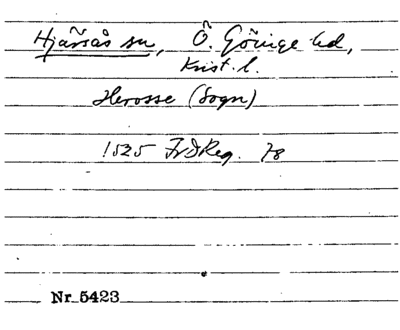 Hjärsås sn, Ö. Göinge hd,
Krist. l.
Herosse (Sogn)
1525 FrDReg. 78
Nr 5423